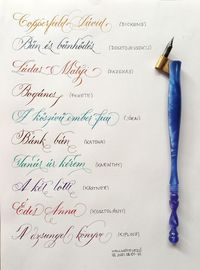 Copperfield Dávid (DICKENS)
Bűn és bűnhődés (DOSZTOJEVSZKIJ)
Lúdas Matyi (FAZEKAS)
Bogáncs (FEKETE)
A kőszívű ember fiai (JÓKAI)
Bánk bán (KATONA)
Tanár úr kérem (KARINTHY)
A két Lotti (KÄSTNER)
Édes Anna (KOSZTOLÁNYI)
A dzsungel könyve (KIPLING)